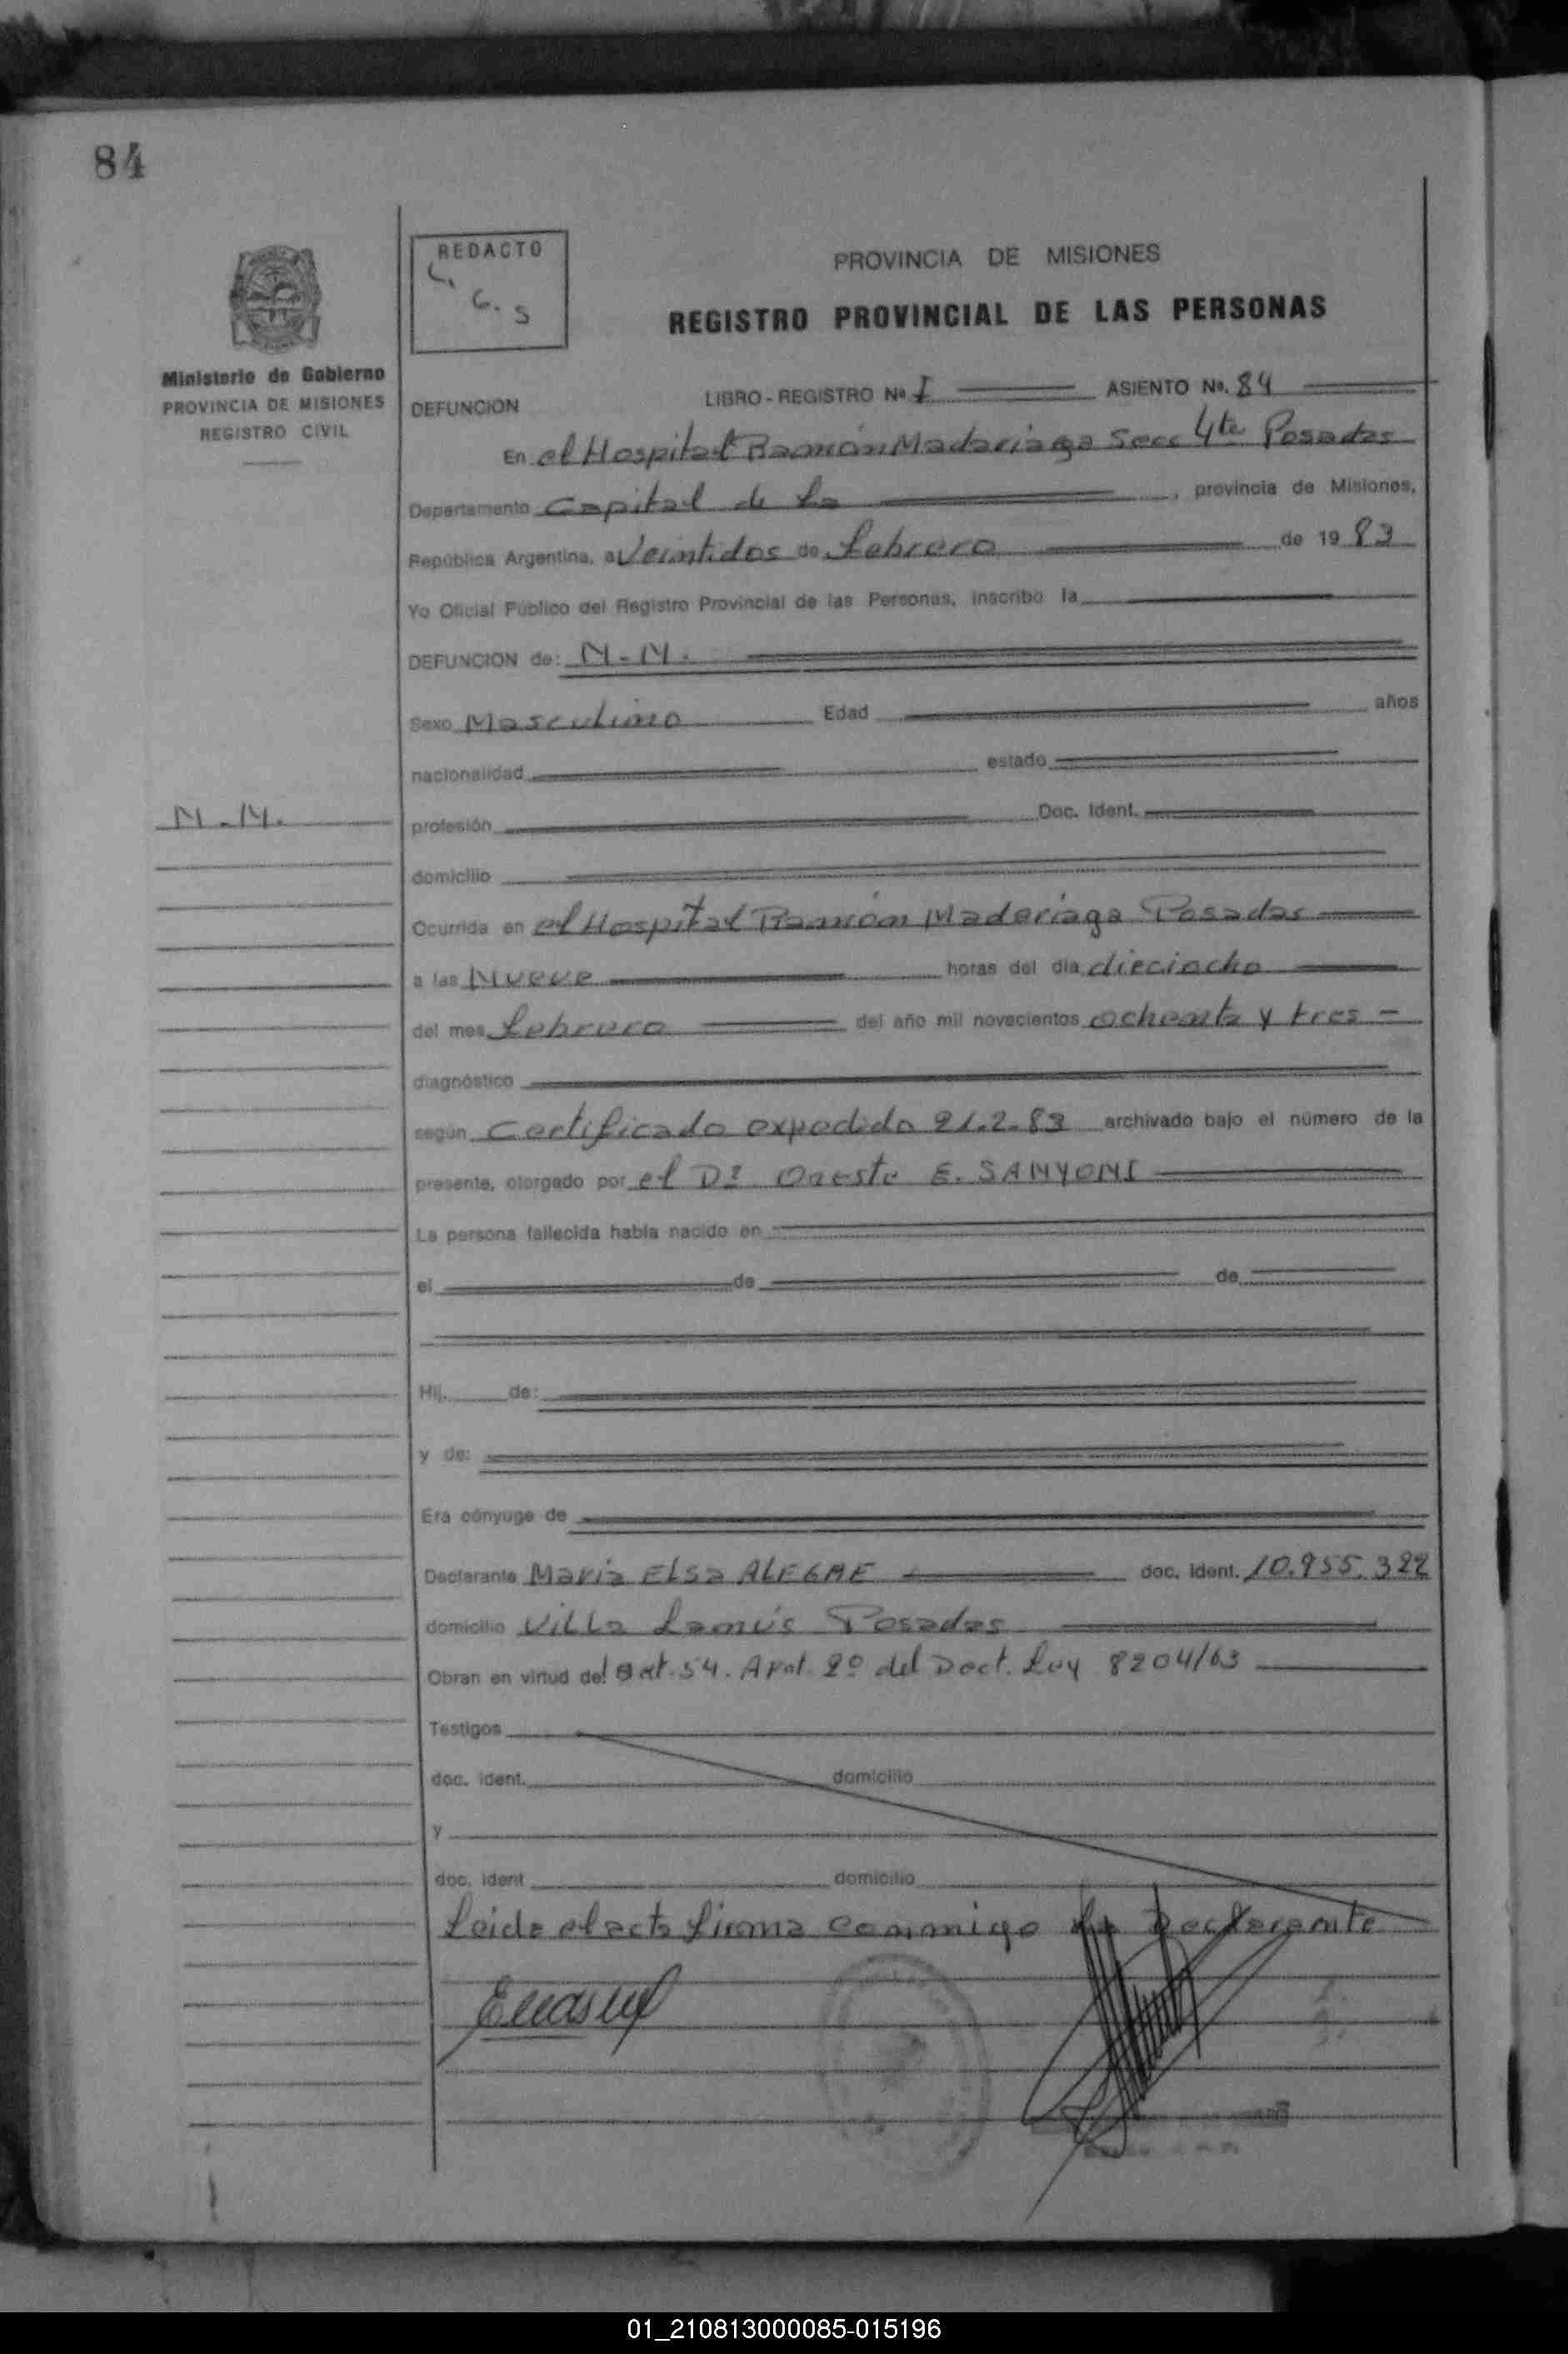 84
REDACTO
C. G. S
Ministerio de Gobierno
PROVINCIA DE MISIONES
REGISTRO CIVIL
PROVINCIA DE MISIONES
REGISTRO PROVINCIAL DE LAS PERSONAS
DEFUNCION LIBRO - REGISTRO Nº I ASIENTO Nº. 84
En el Hospital Ramón Madariaga Secc 4ta Posadas
Departamento Capital de La , provincia de Misiones,
República Argentina, a Veintidos de febrero de 1983
Yo Oficial Público del Registro Provincial de las Personas, inscribo la
DEFUNCION de: N-N.
Sexo Masculino Edad años
nacionalidad estado
N-N.
profesión Doc. Ident.
domicilio
Ocurrida en el Hospital Ramón Madariaga Posadas
a las Nueve horas del día dieciocho
del mes febrero del año mil novecientos ochenta y tres -
diagnóstico
según Certificado expedido 21.2.83 archivado bajo el número de la
presente, otorgado por el Dr Oreste E. SANYONI
La persona fallecida había nacido en
el de de
Hij. de:
y de:
Era cónyuge de
Declarante Maria Elsa ALEGRE doc. ident. 10.955.322
domicilio Villa Lanús Posadas
Obran en virtud del art. 54. Apat. 2º del Dect. Ley 8204/63
Testigos
doc. ident. domicilio
y
doc. ident domicilio
Leida el acta firma conmigo La Declarante
01_210813000085-015196